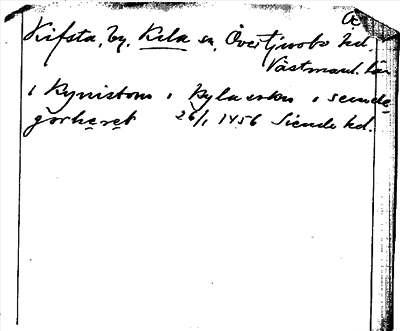 A
Kifsta, by, Kila sn, Övertjurbo hd.
Västmanl. län
i Kynistom i Kyla sokn i siende
gørheret 26/1 1456 Siende hd.